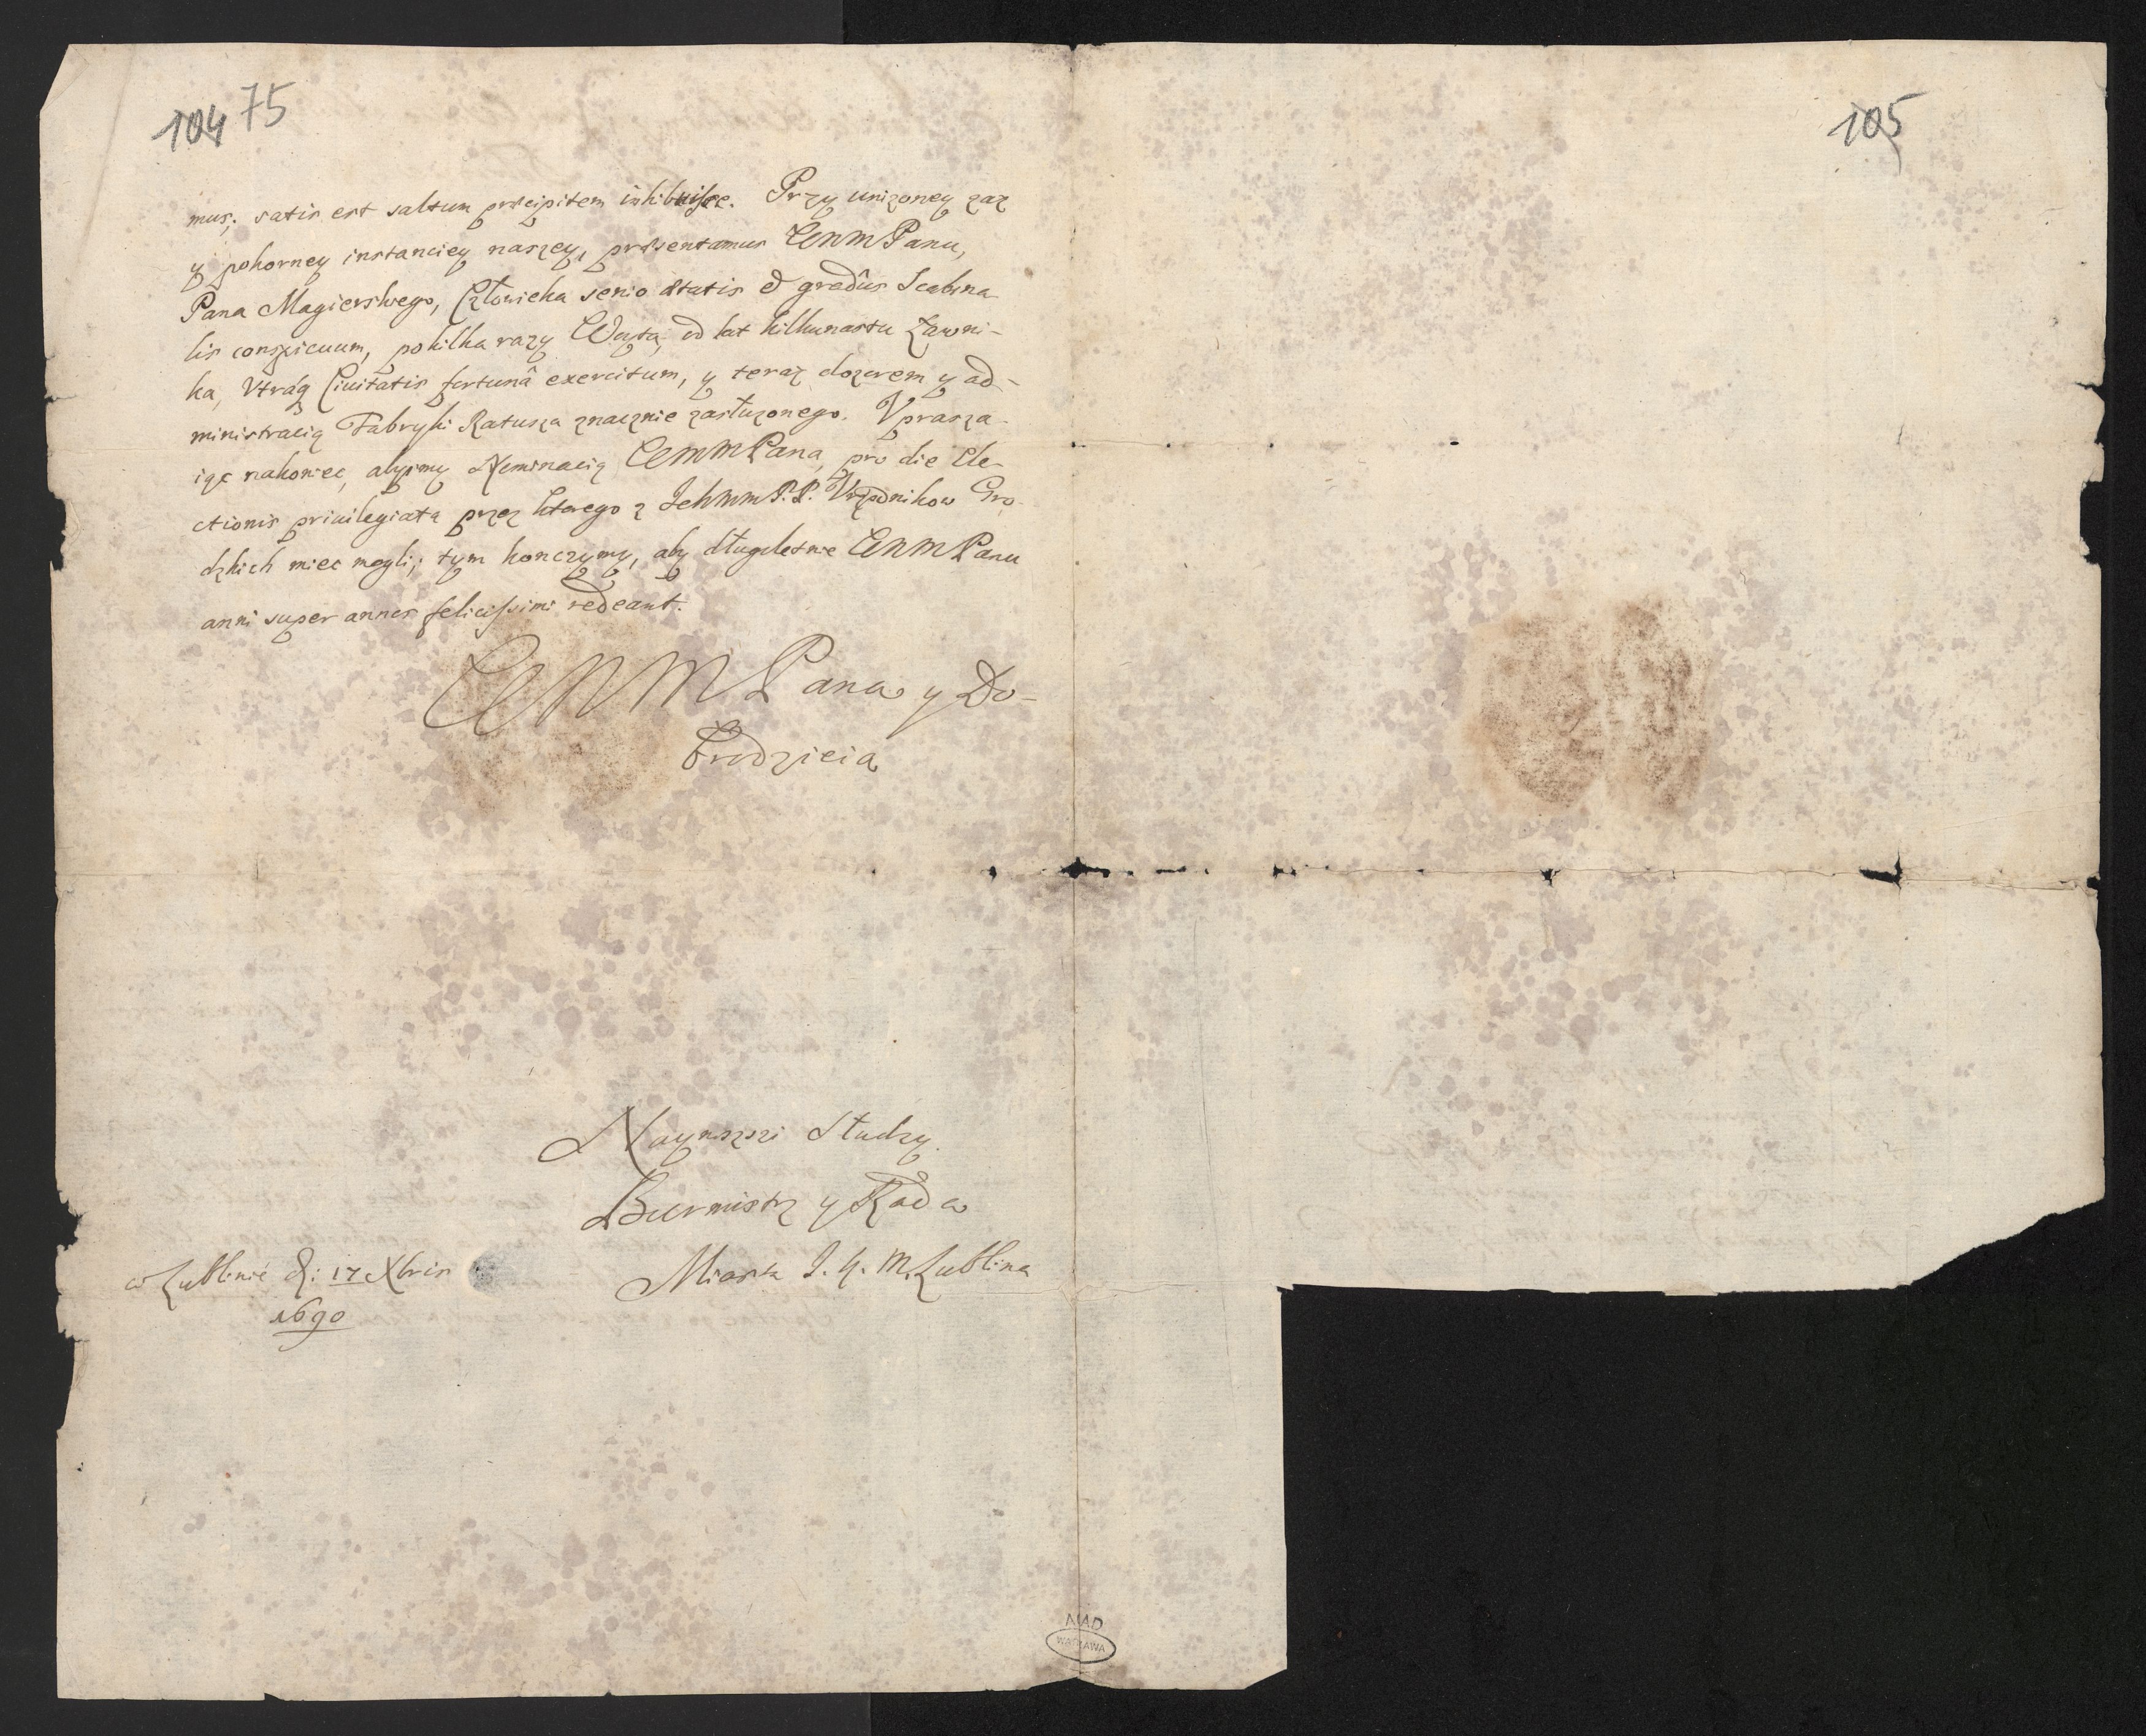 104 75
105
mus; satis est saltum præcipitem inhibuisse. Przy unizoney zaz
y pokorney instanciey naszey, præsentamus WMM Panu,
Pana Magierskiego, Człowieka senio ætatis et gradûs Scabina
lis conspicuum, po kilka razy Woyta, od lat kilkunastu Ławni-
ka, Vtráq Ciuitatis fortunâ exercitum, y teraz dozorem y ad-
ministracią Fabryki Ratusza znacznie zasłużonego. Vprasza-
iąc nakoniec, abysmy Nominacią WMM Pana, pro die Ele-
ctionis priuilegiata przez ktorego z Ichmm P.P. Vrzędnikow Gro-
dzkich miec mogli; tym konczymy, aby długoletnie WMM Panu
anni super annos felicissimi redeant.
WMM Pana y Do-
brodzieia
Nayniszsi Słudzy
Burmistrz y Rada
Miasta J. K. M. Lublina
w Lublinie d: 17 Xbris
1690
AGAD
WARSZAWA